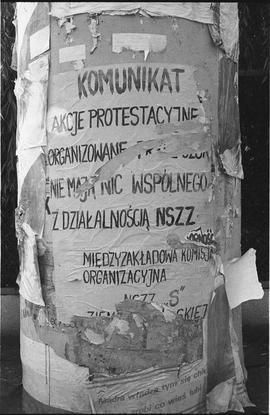 KOMUNIKAT
AKCJE PROTESTACYJNE
ORGANIZOWANE PRZEZ
NIE MAJĄ NIC WSPÓLNEGO
Z DZIAŁALNOŚCIĄ NSZZ
MIĘDZYZAKŁADOWA KOMISJA
ORGANIZACYJNA
NSZZ „S”
ZIEMI
Mądra władza tym się
zrobi co wieś